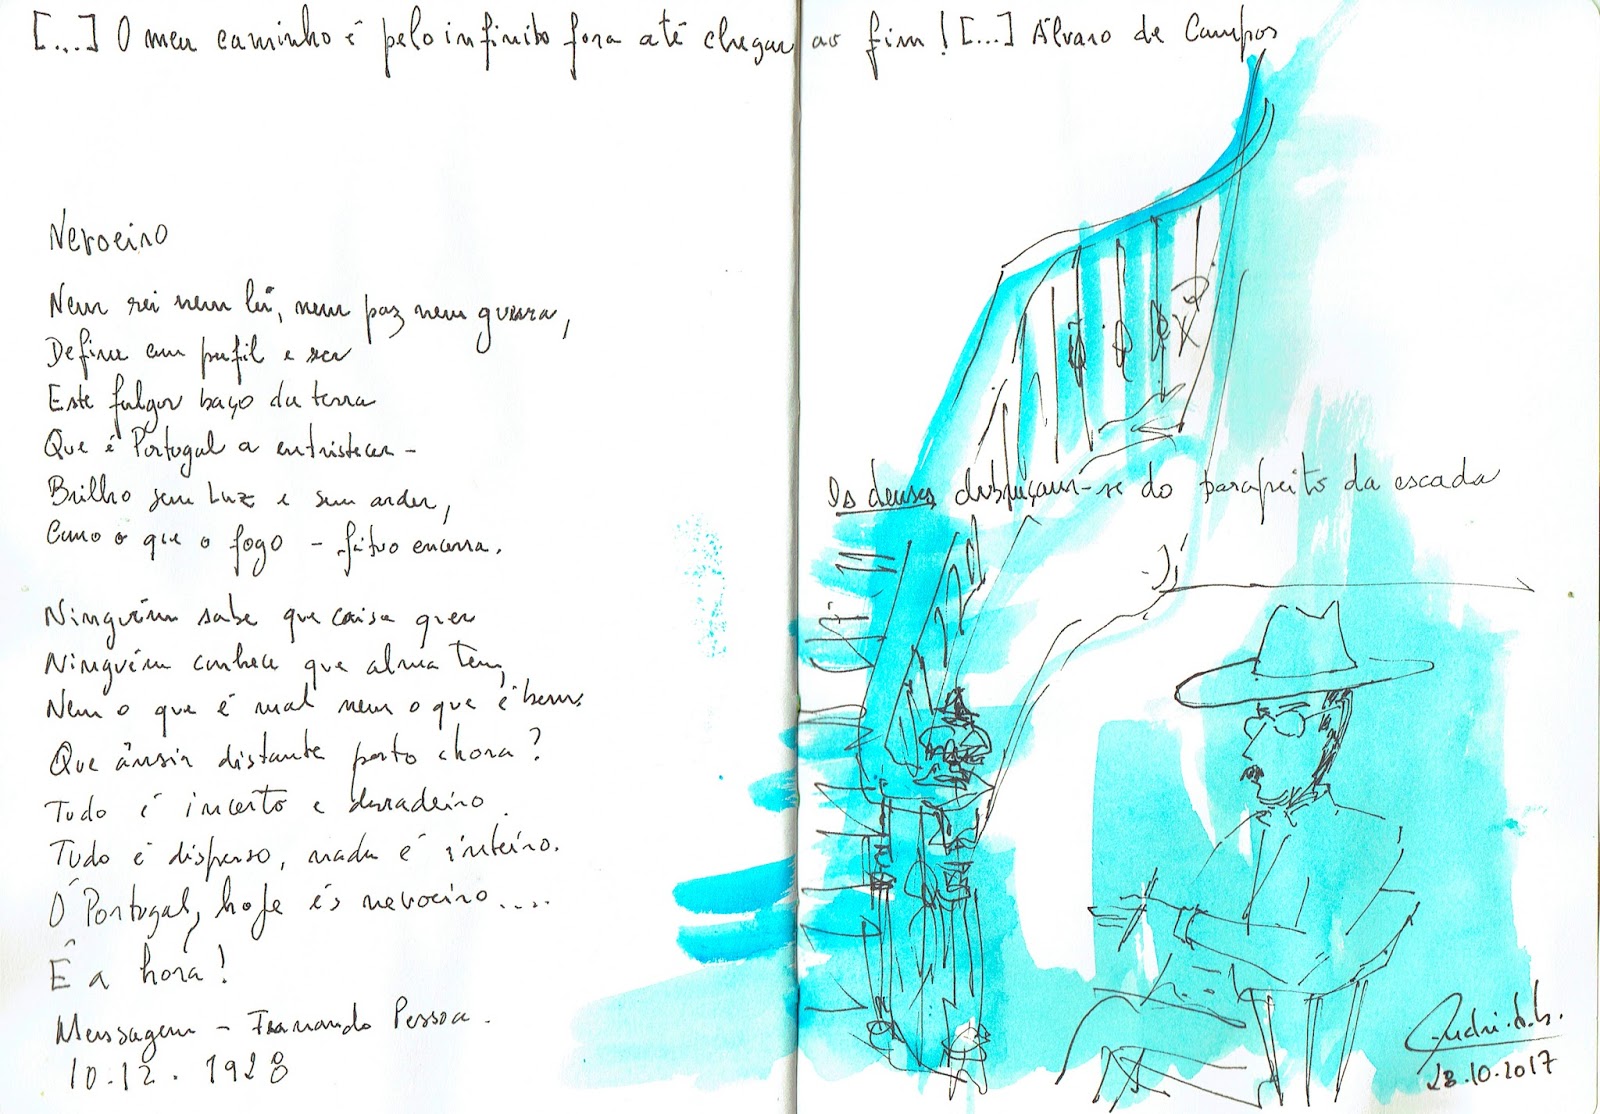 [...] O meu caminho é pelo infinito fora até chegar ao fim! [...] Álvaro de Campos
Nevoeiro
Nem rei nem lei, nem paz nem guerra,
Define com perfil e ser
Este fulgor baço da terra
Que é Portugal a entristecer -
Brilho sem luz e sem arder,
Como o que o fogo - fátuo encerra.
Ninguém sabe que coisa quer
Ninguém conhece que alma tem,
Nem o que é mal nem o que é bem.
Que ânsia distante perto chora?
Tudo é incerto e derradeiro.
Tudo é disperso, nada é inteiro.
Ó Portugal, hoje és nevoeiro....
É a hora!
Mensagem - Fernando Pessoa.
10.12.1928
Os deuses debruçam-se do parapeito da escada
28.10.2017